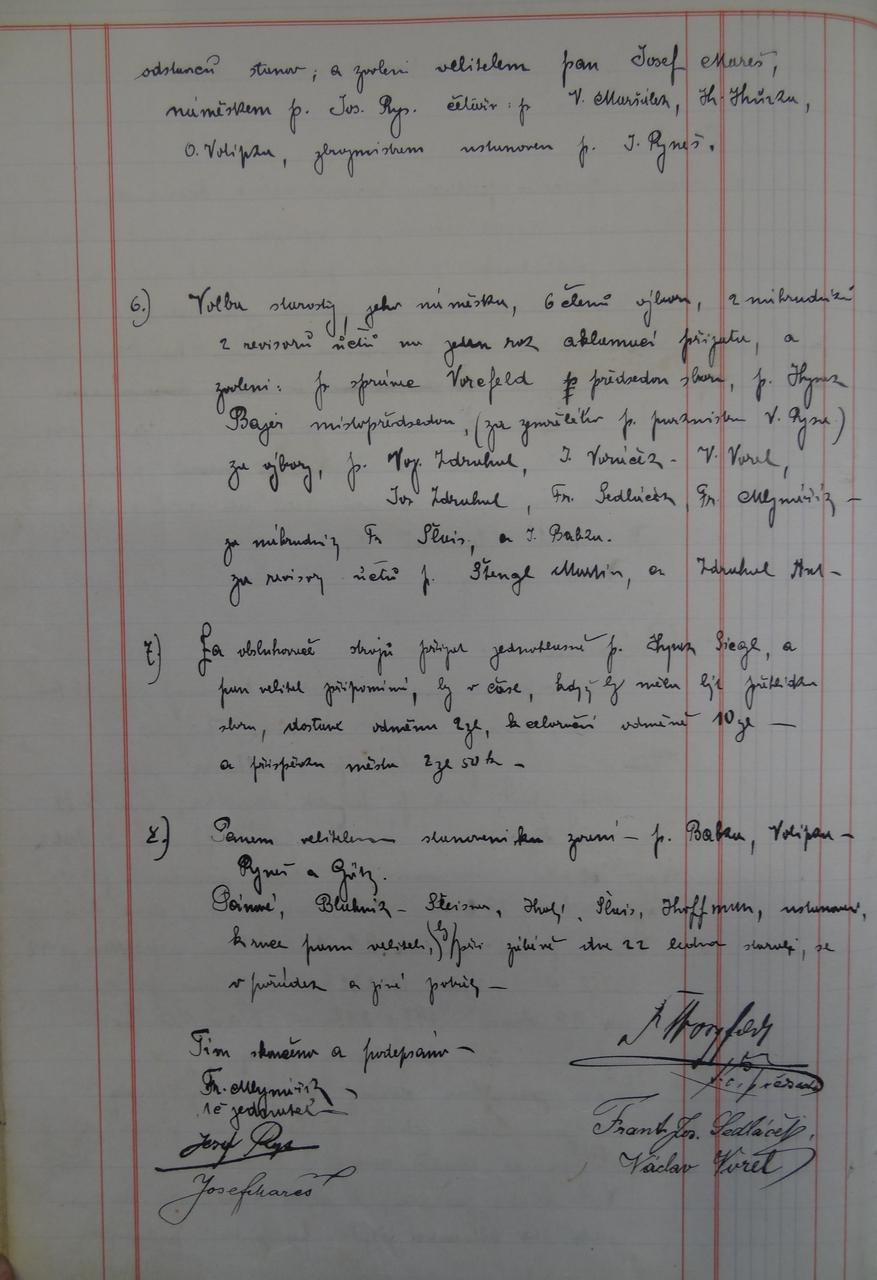 odstavců stanov; a zvoleni velitelem pan Josef Mareš,
náměskem p. Jos. Rys. četáře: p V. Maršálek, Hy. Hůrka,
O. Volipka, zbrojmistrem ustanoven p. J. Ryneš.
6.) Volba starosty, jeho náměska, 6 členů výboru, 2 náhradníků
2 revisorů účtů na jeden rok aklamací přijata, a
zvoleni: p správce Vorefeld předsedou sboru, p. Hynek
Bajer místopředsedou, (za zemřelého p. purkmistra V. Rysa)
za výbory, p. Voj. Zdrahal, J. Voráček - V. Vorel,
Jos Zdrahal, Fr. Sedláček, Fr. Mlynářík —
za náhradníky Fr Šlais, a J. Babka.
za revisory účtů p. Štengl Martin, a Zdrahal Ant —
7.) Za obsluhovače strojů přijat jednohlasně p. Hynek Siegl, a
pan velitel připomíná, by v čase, když by měla být přehlídka
sboru, dostane odměnu 2 zl, k celoroční odměně 10 zl —
a příspěvku města 2 zl 50 k —
8.) Panem velitelem stanoveni ku zvaní — p. Babka, Volipka —
Ryneš a Götz.
Pánové, Blahník — Šleisna, Hrolý, Šlais, Hoffman, ustanoveni,
k ruce panu veliteli, by při zábavě dne 22 ledna starali, se
v pořádek a jiné potřeby —
Tím skončeno a podepsáno —
Fr. Mlynářík
t č jednatel —
Josef Rys
Josef Mareš
Frant. Jos. Sedláček.
Václav Vorel